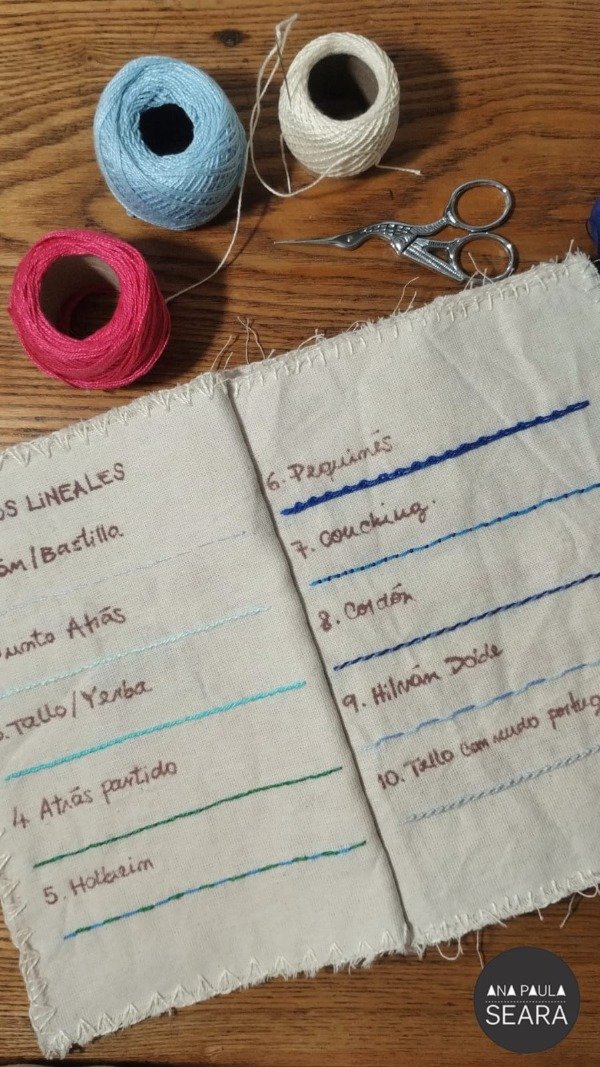 OS LINEALES
án/Bastilla
Punto Atrás
3. Tallo/Yerba
4. Atrás partido
5. Holbein
6. Pequinés
7. Couching.
8. Cordón
9. Hilván Doble
10. Tallo con nudo portug
ANA PAULA
SEARA